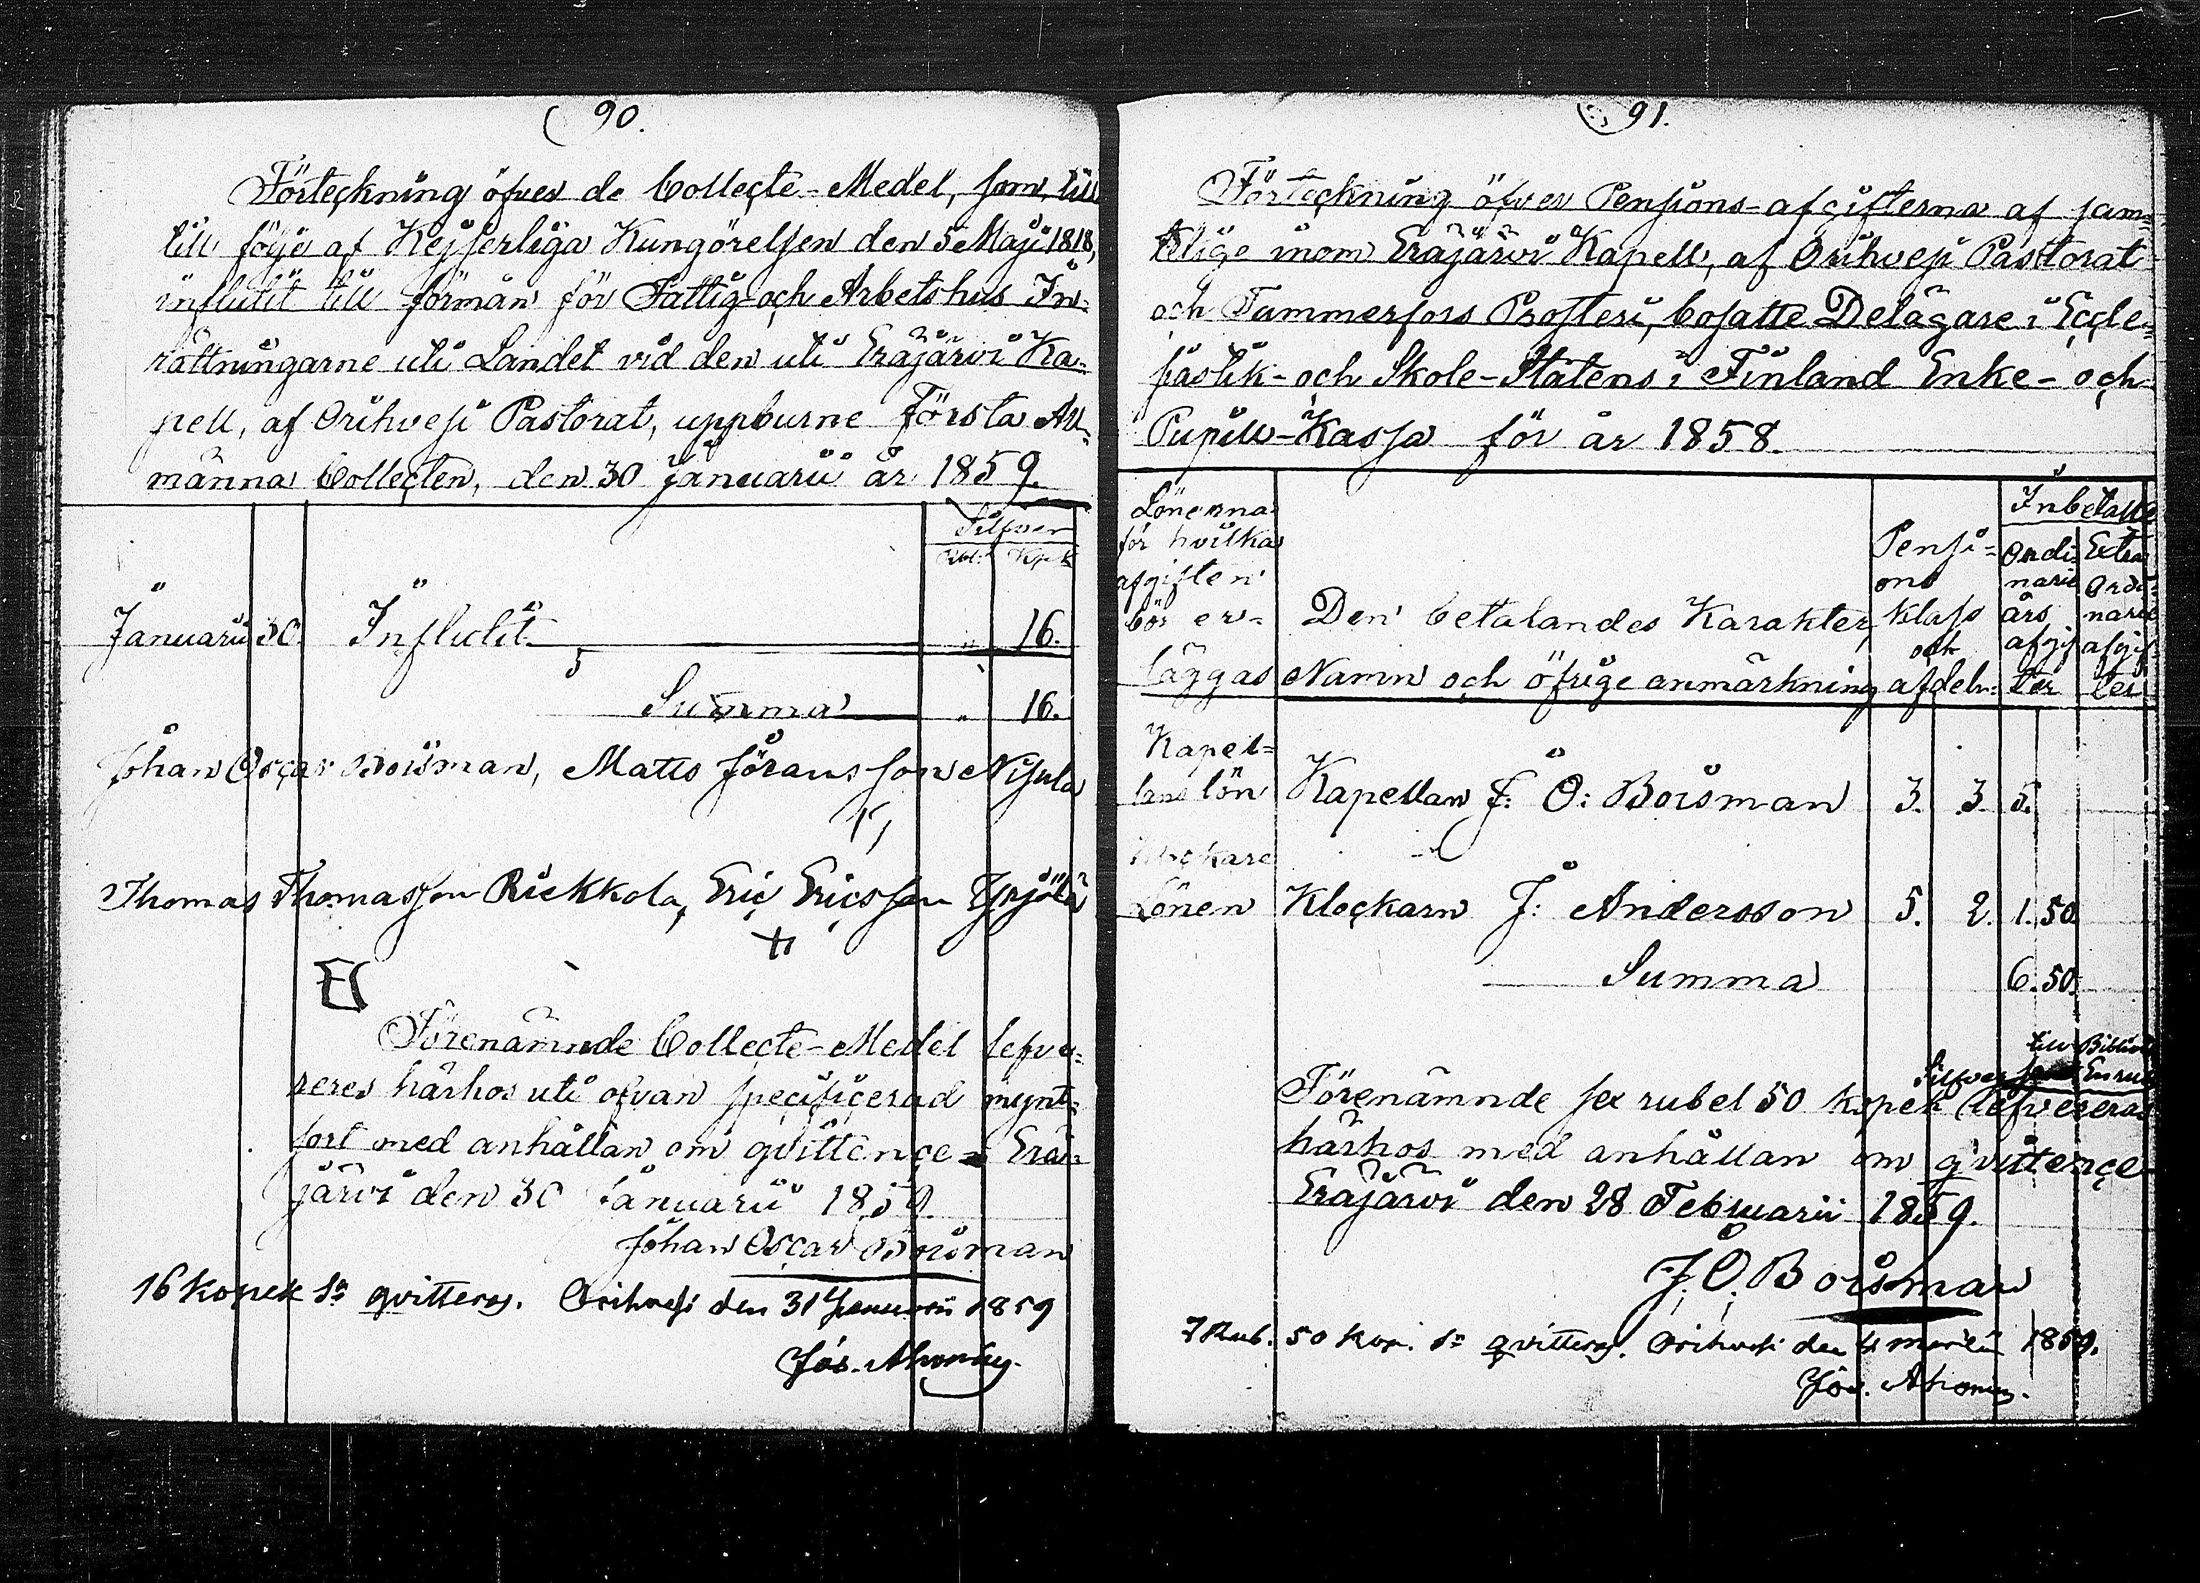 90.
Förteckning öfver de Collecte-Medel, som, till
till följe af Kejserliga Kungörelsen den 5 Maji 1818,
influtit till förmån för Fattig- och Arbetshus In-
rättningarne uti Landet vid den uti Eräjärvi Ka-
pell, af Orihvesi Pastorat, uppburne Första All-
männa Collecten, den 30 Januarii år 1859.
Silfver
Rbl. Kpk
Januarii 30. Influtit " 16.
Summa " 16.
Johan Oscar Boisman, Matts Jöransson Nisula
Thomas Thomasson Riekkola, Eric Ericsson Yrjölä
Förenämnde Collecte-Medel lefve-
reres härhos uti ofvan specificerad mynt-
sort med anhållan om qvittence. Erä-
järvi den 30 Januarii 1859.
Johan Oscar Boisman
16 kopek Sr qvitteras. Orihvesi den 31 Januarii 1859
Jos.
91.
Förteckning öfver Pensions-afgifterna af sam-
telige inom Eräjärvi Kapell, af Orihvesi Pastorat
och Tammerfors Prosteri, bosatte Delägare i Eccle-
siastik- och Skole-Statens i Finland Enke- och
Pupill-Kassa för år 1858.
Lönerna för hvilka afgiften bör er-läggas
Den betalandes Karakter, Namn och öfrige anmärkning
Pensi-ons klass och afdeln:
Inbetalte
Ordi-narie års afgif-ter
Extra Ordi-narie afgif-ter
Kapel-
lans lön Kapellan J: O: Boisman 3. 3. 5.
Klockare
Lönen Klockarn J: Andersson 5. 2. 1.50
Summa 6.50.
till Biblioth
Silfver samt En rub
Förenämnde sex rubel 50 kopek lefvereras
härhos med anhållan om qvittence
Eräjärvi den 28 Februarii 1859.
J. O. Boisman
7 Rub. 50 kop. Sr qvitteras. Orihvesi den 4 Martii 1859.
Jos.